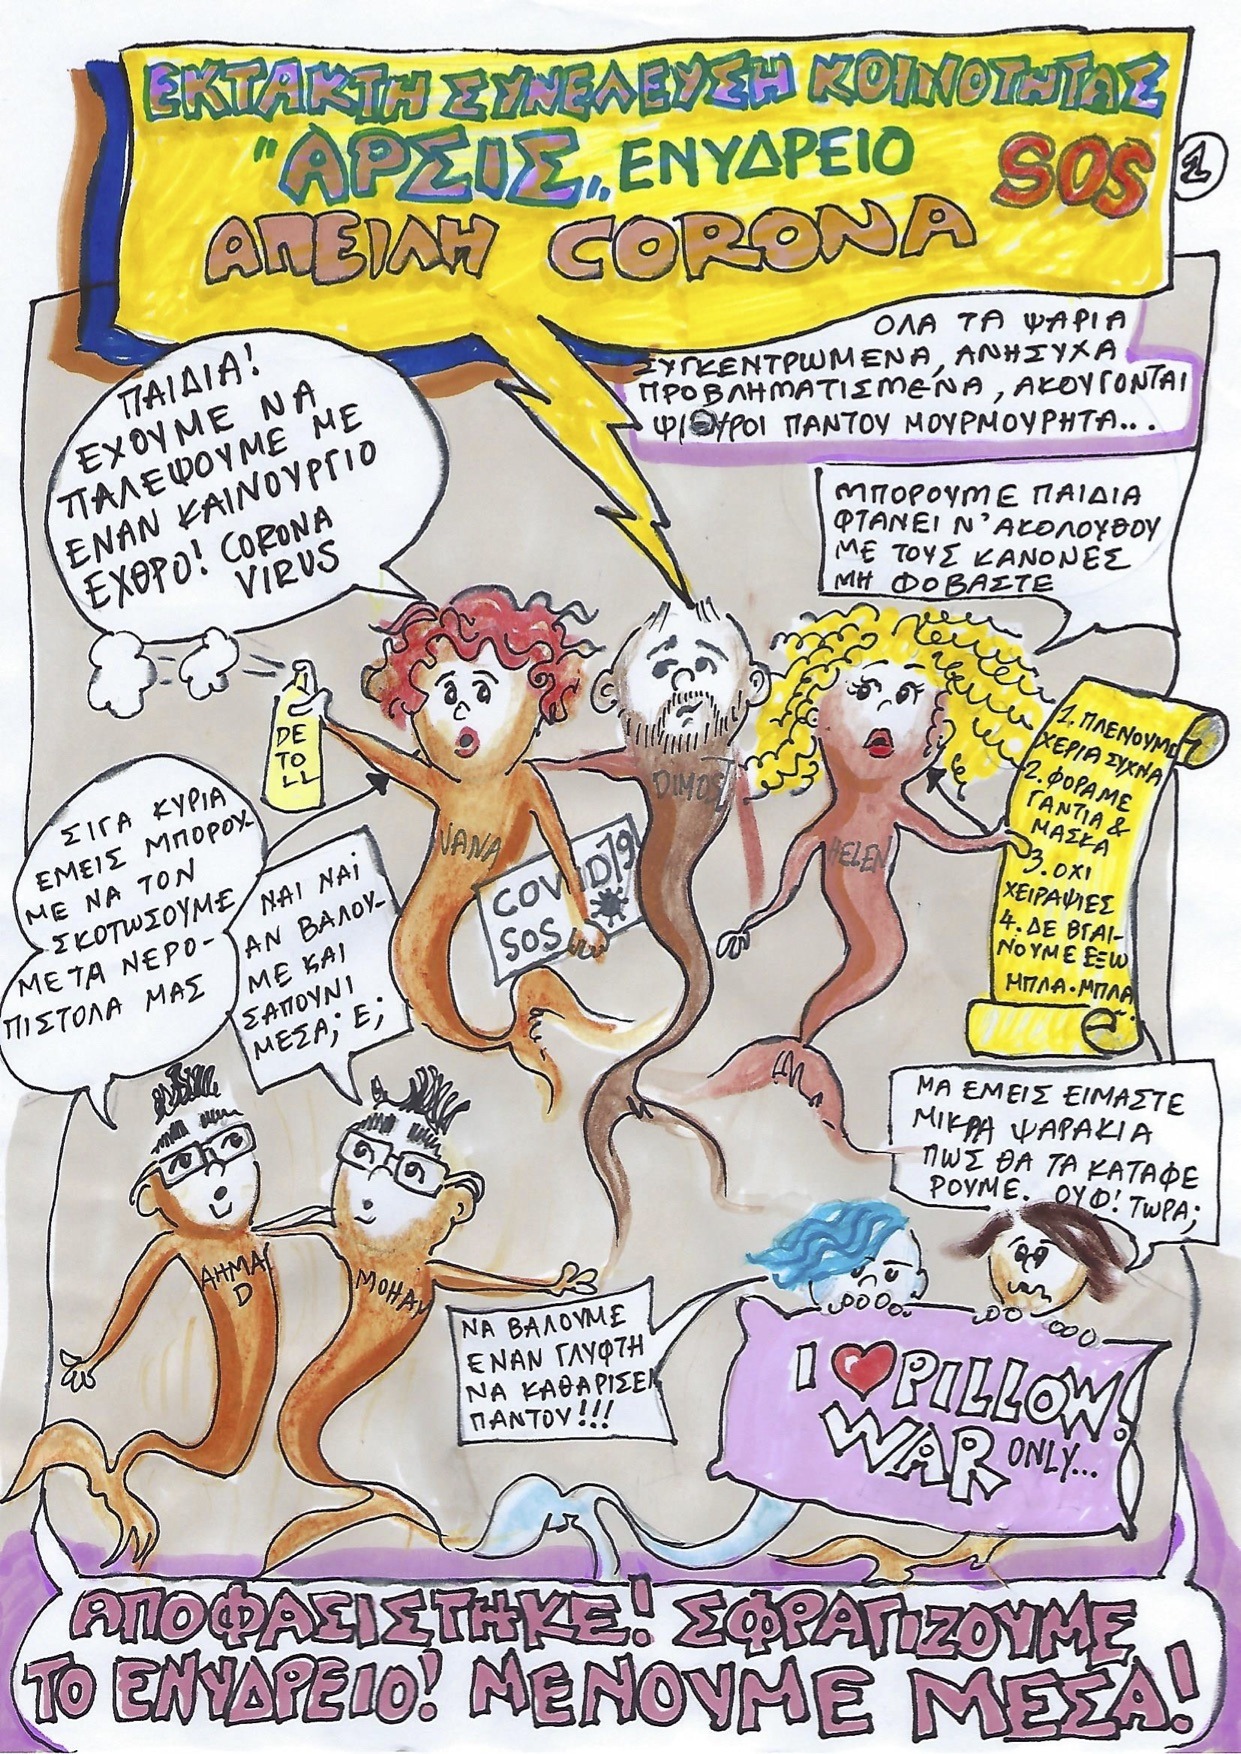 ΕΚΤΑΚΤΗ ΣΥΝΕΛΕΥΣΗ ΚΟΙΝΟΤΗΤΑΣ
"ΑΡΣΙΣ„ ΕΝΥΔΡΕΙΟ
SOS
1
ΑΠΕΙΛΗ CORONA
ΟΛΑ ΤΑ ΨΑΡΙΑ
ΣΥΓΚΕΝΤΡΩΜΕΝΑ, ΑΝΗΣΥΧΑ
ΠΡΟΒΛΗΜΑΤΙΣΜΕΝΑ, ΑΚΟΥΓΟΝΤΑΙ
ΨΙΘΥΡΟΙ ΠΑΝΤΟΥ ΜΟΥΡΜΟΥΡΗΤΑ...
ΠΑΙΔΙΑ!
ΕΧΟΥΜΕ ΝΑ
ΠΑΛΕΨΟΥΜΕ ΜΕ
ΕΝΑΝ ΚΑΙΝΟΥΡΓΙΟ
ΕΧΘΡΟ! CORONA
VIRUS
ΜΠΟΡΟΥΜΕ ΠΑΙΔΙΑ
ΦΤΑΝΕΙ Ν' ΑΚΟΛΟΥΘΟΥ
ΜΕ ΤΟΥΣ ΚΑΝΟΝΕΣ
ΜΗ ΦΟΒΑΣΤΕ
DE
TO
LL
VANA
COVID19
SOS
DIMOS
HELEN
1. ΠΛΕΝΟΥΜΕ
ΧΕΡΙΑ ΣΥΧΝΑ
2. ΦΟΡΑΜΕ
ΓΑΝΤΙΑ &
ΜΑΣΚΑ
3. ΟΧΙ
ΧΕΙΡΑΨΙΕΣ
4. ΔΕ ΒΓΑΙ-
ΝΟΥΜΕ ΕΞΩ
ΜΠΛΑ. ΜΠΛΑ.
ΣΙΓΑ ΚΥΡΙΑ
ΕΜΕΙΣ ΜΠΟΡΟΥ-
ΜΕ ΝΑ ΤΟΝ
ΣΚΟΤΩΣΟΥΜΕ
ΜΕ ΤΑ ΝΕΡΟ-
ΠΙΣΤΟΛΑ ΜΑΣ
ΝΑΙ ΝΑΙ
ΑΝ ΒΑΛΟΥ-
ΜΕ ΚΑΙ
ΣΑΠΟΥΝΙ
ΜΕΣΑ; Ε;
AHMA
D
MOHAM
ΜΑ ΕΜΕΙΣ ΕΙΜΑΣΤΕ
ΜΙΚΡΑ ΨΑΡΑΚΙΑ
ΠΩΣ ΘΑ ΤΑ ΚΑΤΑΦΕ
ΡΟΥΜΕ. ΟΥΦ! ΤΩΡΑ;
ΝΑ ΒΑΛΟΥΜΕ
ΕΝΑΝ ΓΛΥΦΤΗ
ΝΑ ΚΑΘΑΡΙΣΕΙ
ΠΑΝΤΟΥ!!!
I ❤ PILLOW!
WAR ONLY...
ΑΠΟΦΑΣΙΣΤΗΚΕ! ΣΦΡΑΓΙΖΟΥΜΕ
ΤΟ ΕΝΥΔΡΕΙΟ! ΜΕΝΟΥΜΕ ΜΕΣΑ!